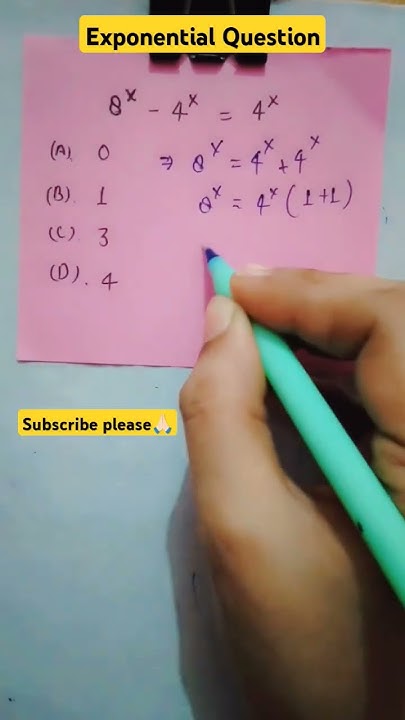 Exponential Question
8ˣ - 4ˣ = 4ˣ
(A). 0
⇒ 8ˣ = 4ˣ + 4ˣ
(B). 1
8ˣ = 4ˣ (1+1)
(C). 3
(D). 4
Subscribe please🙏🏻